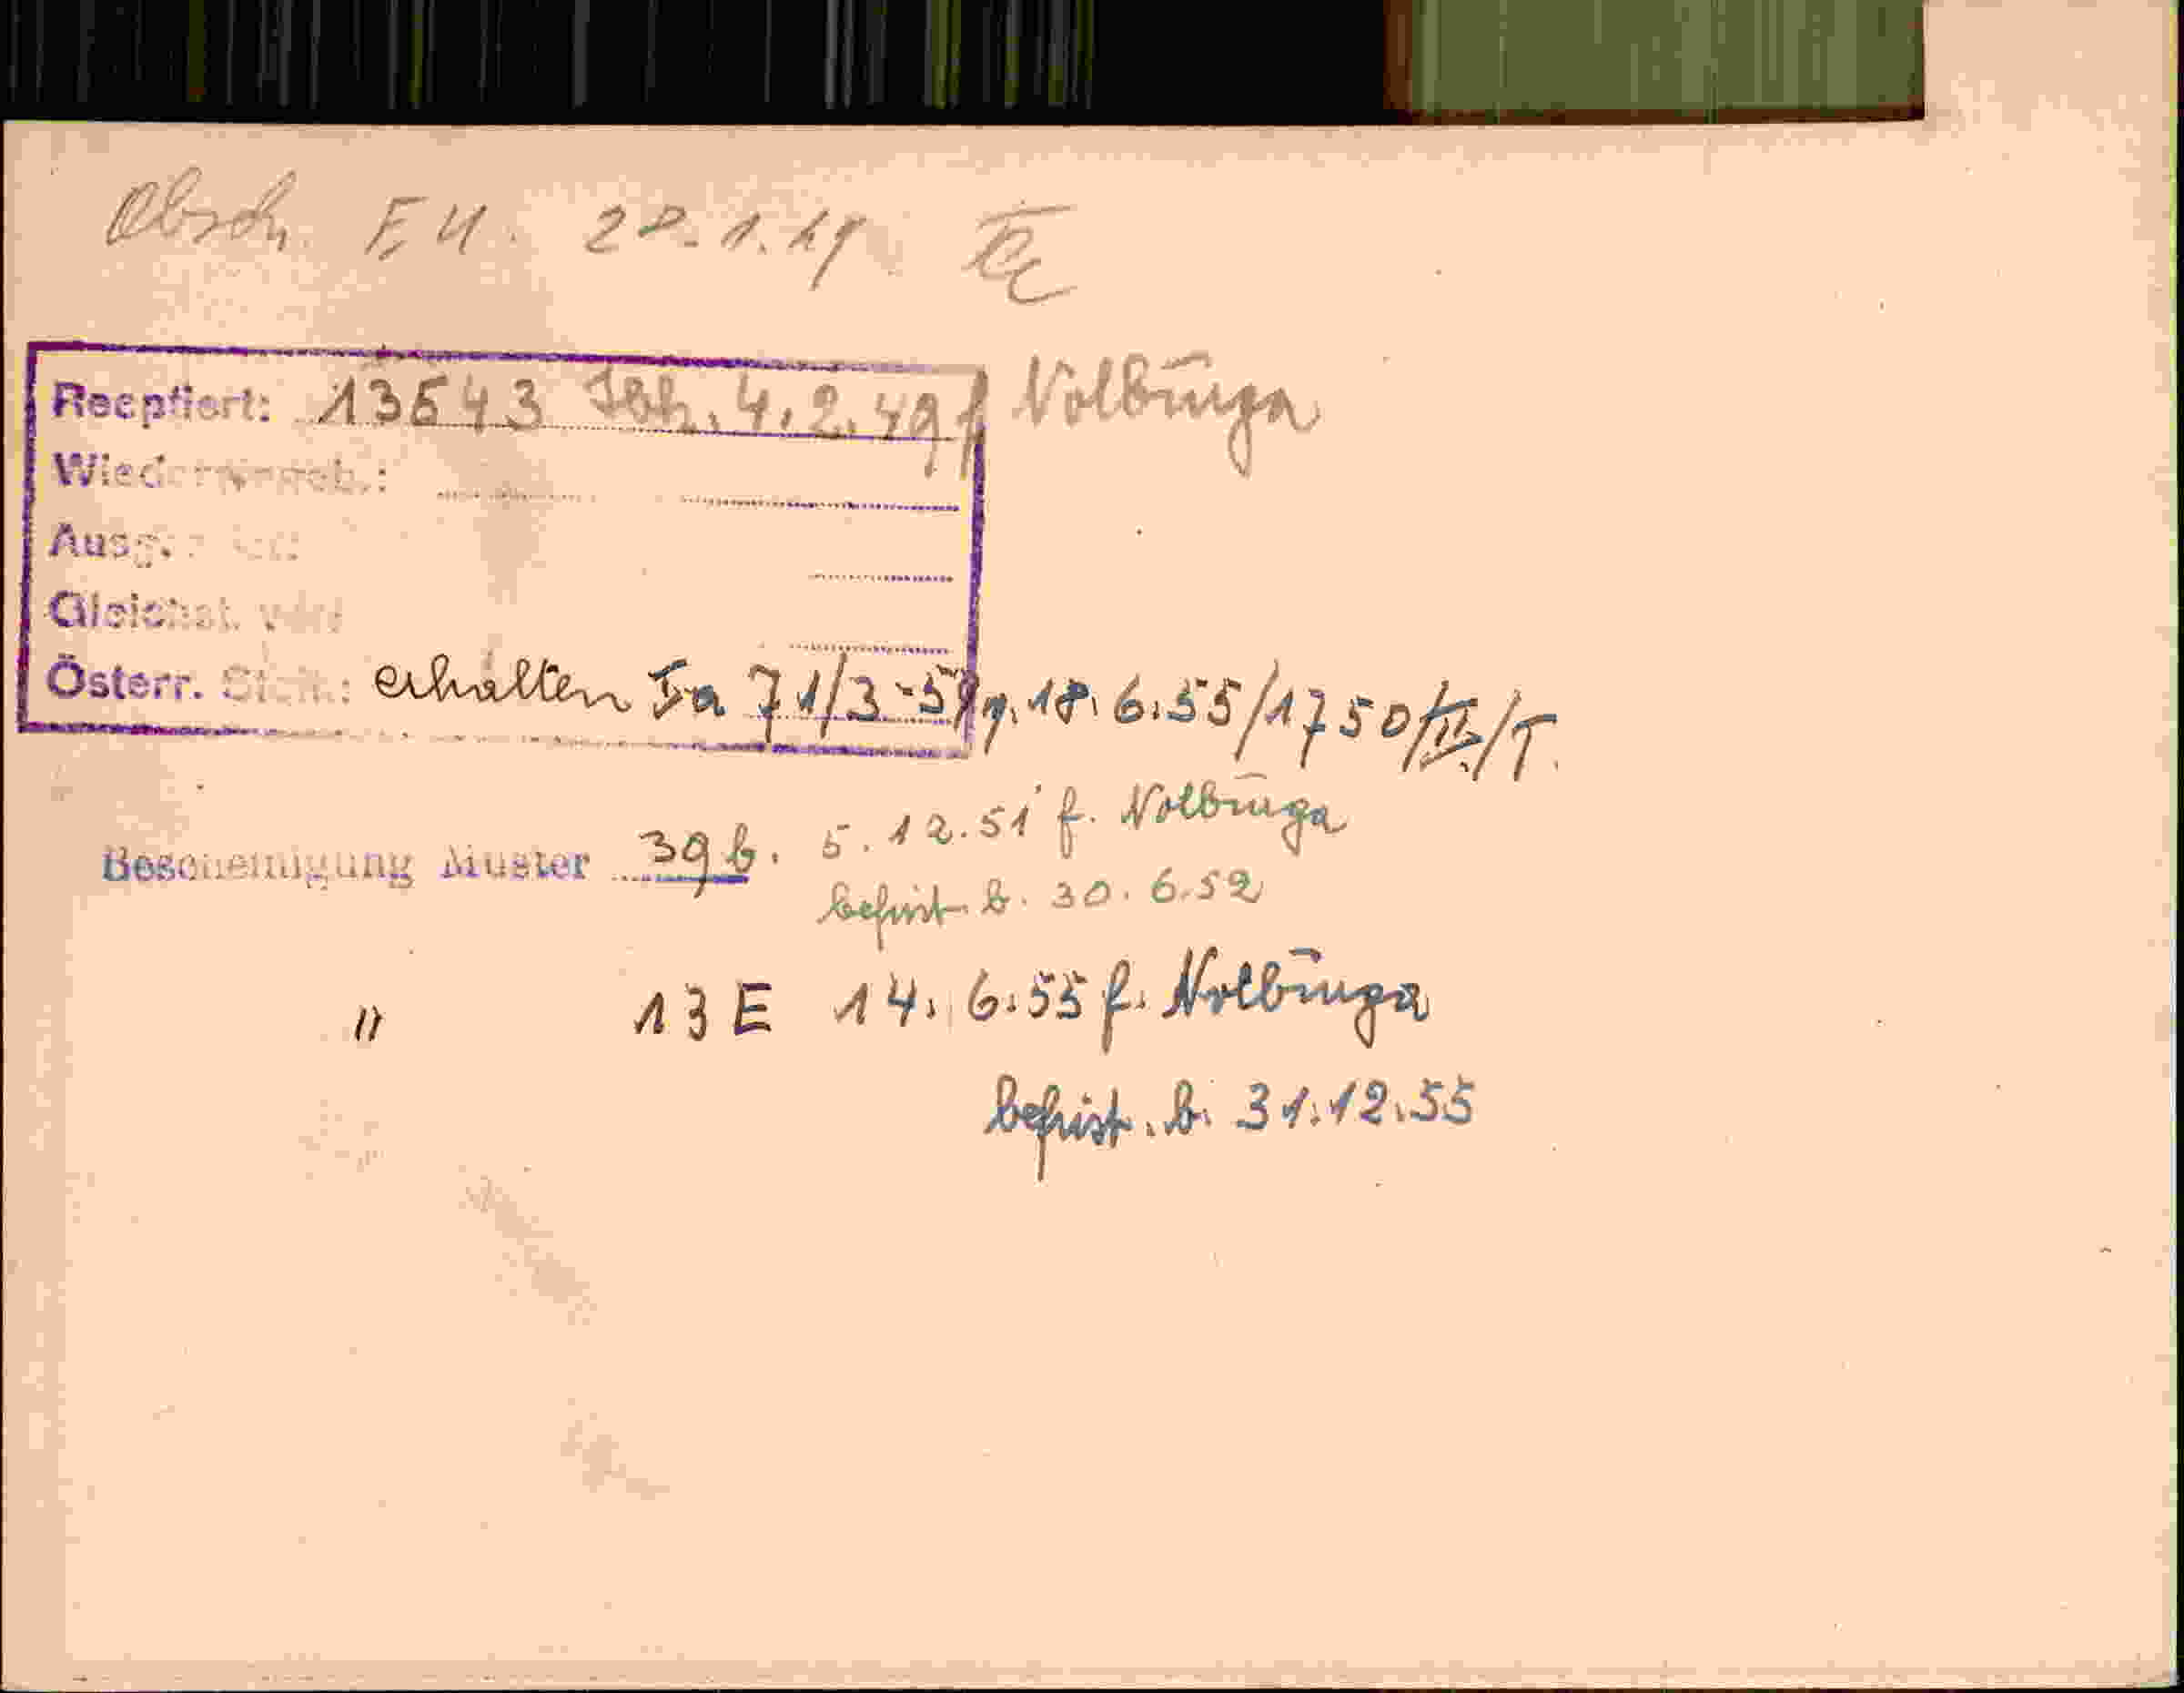 Absch. F. U. 28.1.49
Reeptiert: 13543 Ibk. 4.2.49 f Nolbūrga
Wiedervergeb.:
Gleichst. v.
Österr. Stch.: erhalten Ia 71/3-59 v. 18.6.55/1750/II/T.
Bescheinigung Muster 39 b. 5.12.51 f. Nolbūrga
befrist. b. 30.6.52
" 13 E 14.6.55 f. Nolbūrga
befrist. b. 31.12.55